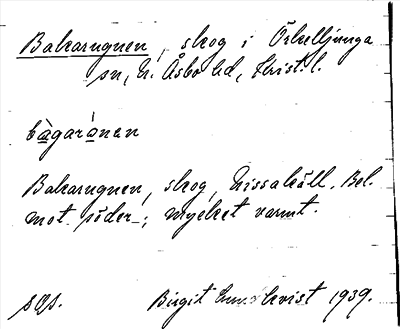 Bakarugnen, skog i Örkelljunga
sn, N. Åsbo hd, Krist. l.
bàgarónan
Bakarugnen, skog, Nissakäll. Bel.
mot söder; mycket varmt.
sgs. Birgit 1939.